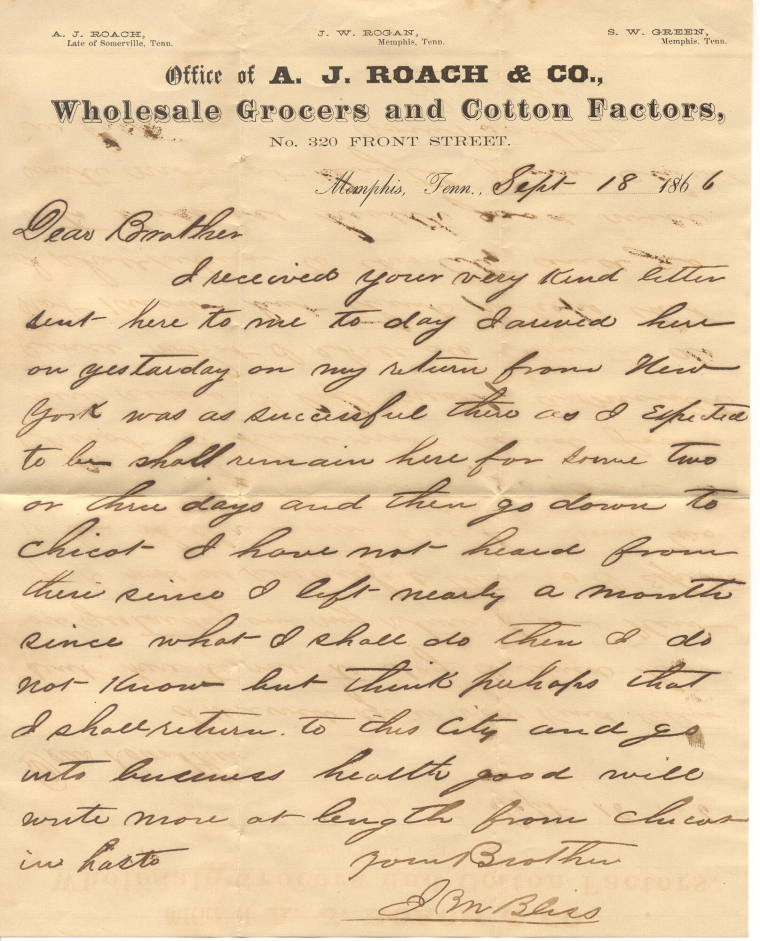 A. J. ROACH,
Late of Somerville, Tenn.
J. W. ROGAN,
Memphis, Tenn.
S. W. GREEN,
Memphis, Tenn.
Office of A. J. ROACH & CO.,
Wholesale Grocers and Cotton Factors,
No. 320 FRONT STREET.
Memphis, Tenn., Sept 18 1866
Dear Brother
I received your very kind letter
sent here to me to day I arived here
on yestarday on my return from New
York was as successful there as I Expected
to be shall remain here for some two
or three days and then go down to
Chicot I have not heard from
there since I left nearly a month
since what I shall do then I do
not know but think perhaps that
I shall return to this City and go
into business health good will
write more at length from Chicot
in haste your Brother
J M Bliss